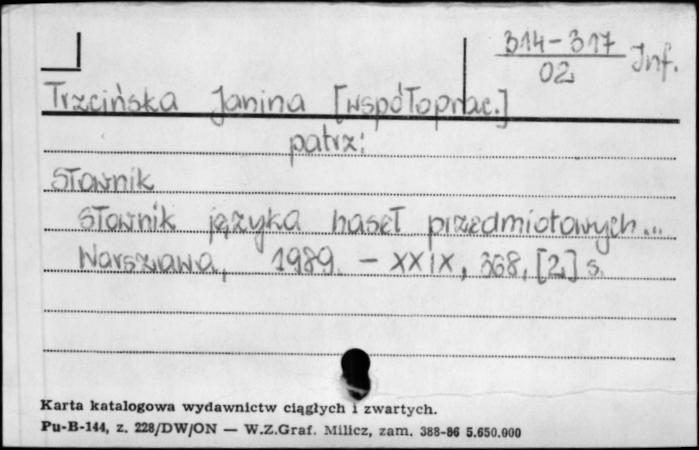 314-317
02 Inf.
Trzcińska Janina [współoprac.]
patrz:
Słownik
Słownik języka haseł przedmiotowych...
Warszawa, 1989. - XXIX, 368, [2] s.
Karta katalogowa wydawnictw ciągłych i zwartych.
Pu-B-144, z. 228/DW/ON — W.Z.Graf. Milicz, zam. 388-86 5.650.000